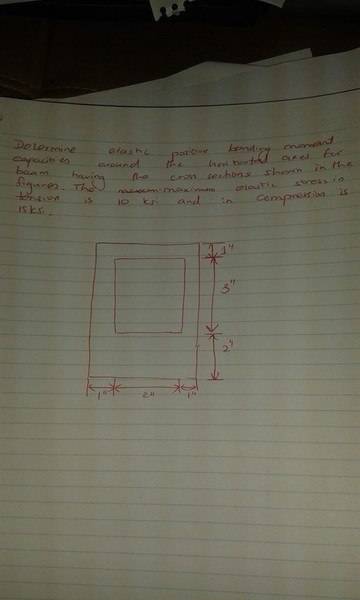 Determine elastic positive bending moment
capacities around the horizontal axes for
beam having the cross sections shown in the
figures. The maximum elastic stress in
tension is 10 ksi and in compression is
15 ksi.
1"
3"
2"
1" 2" 1"